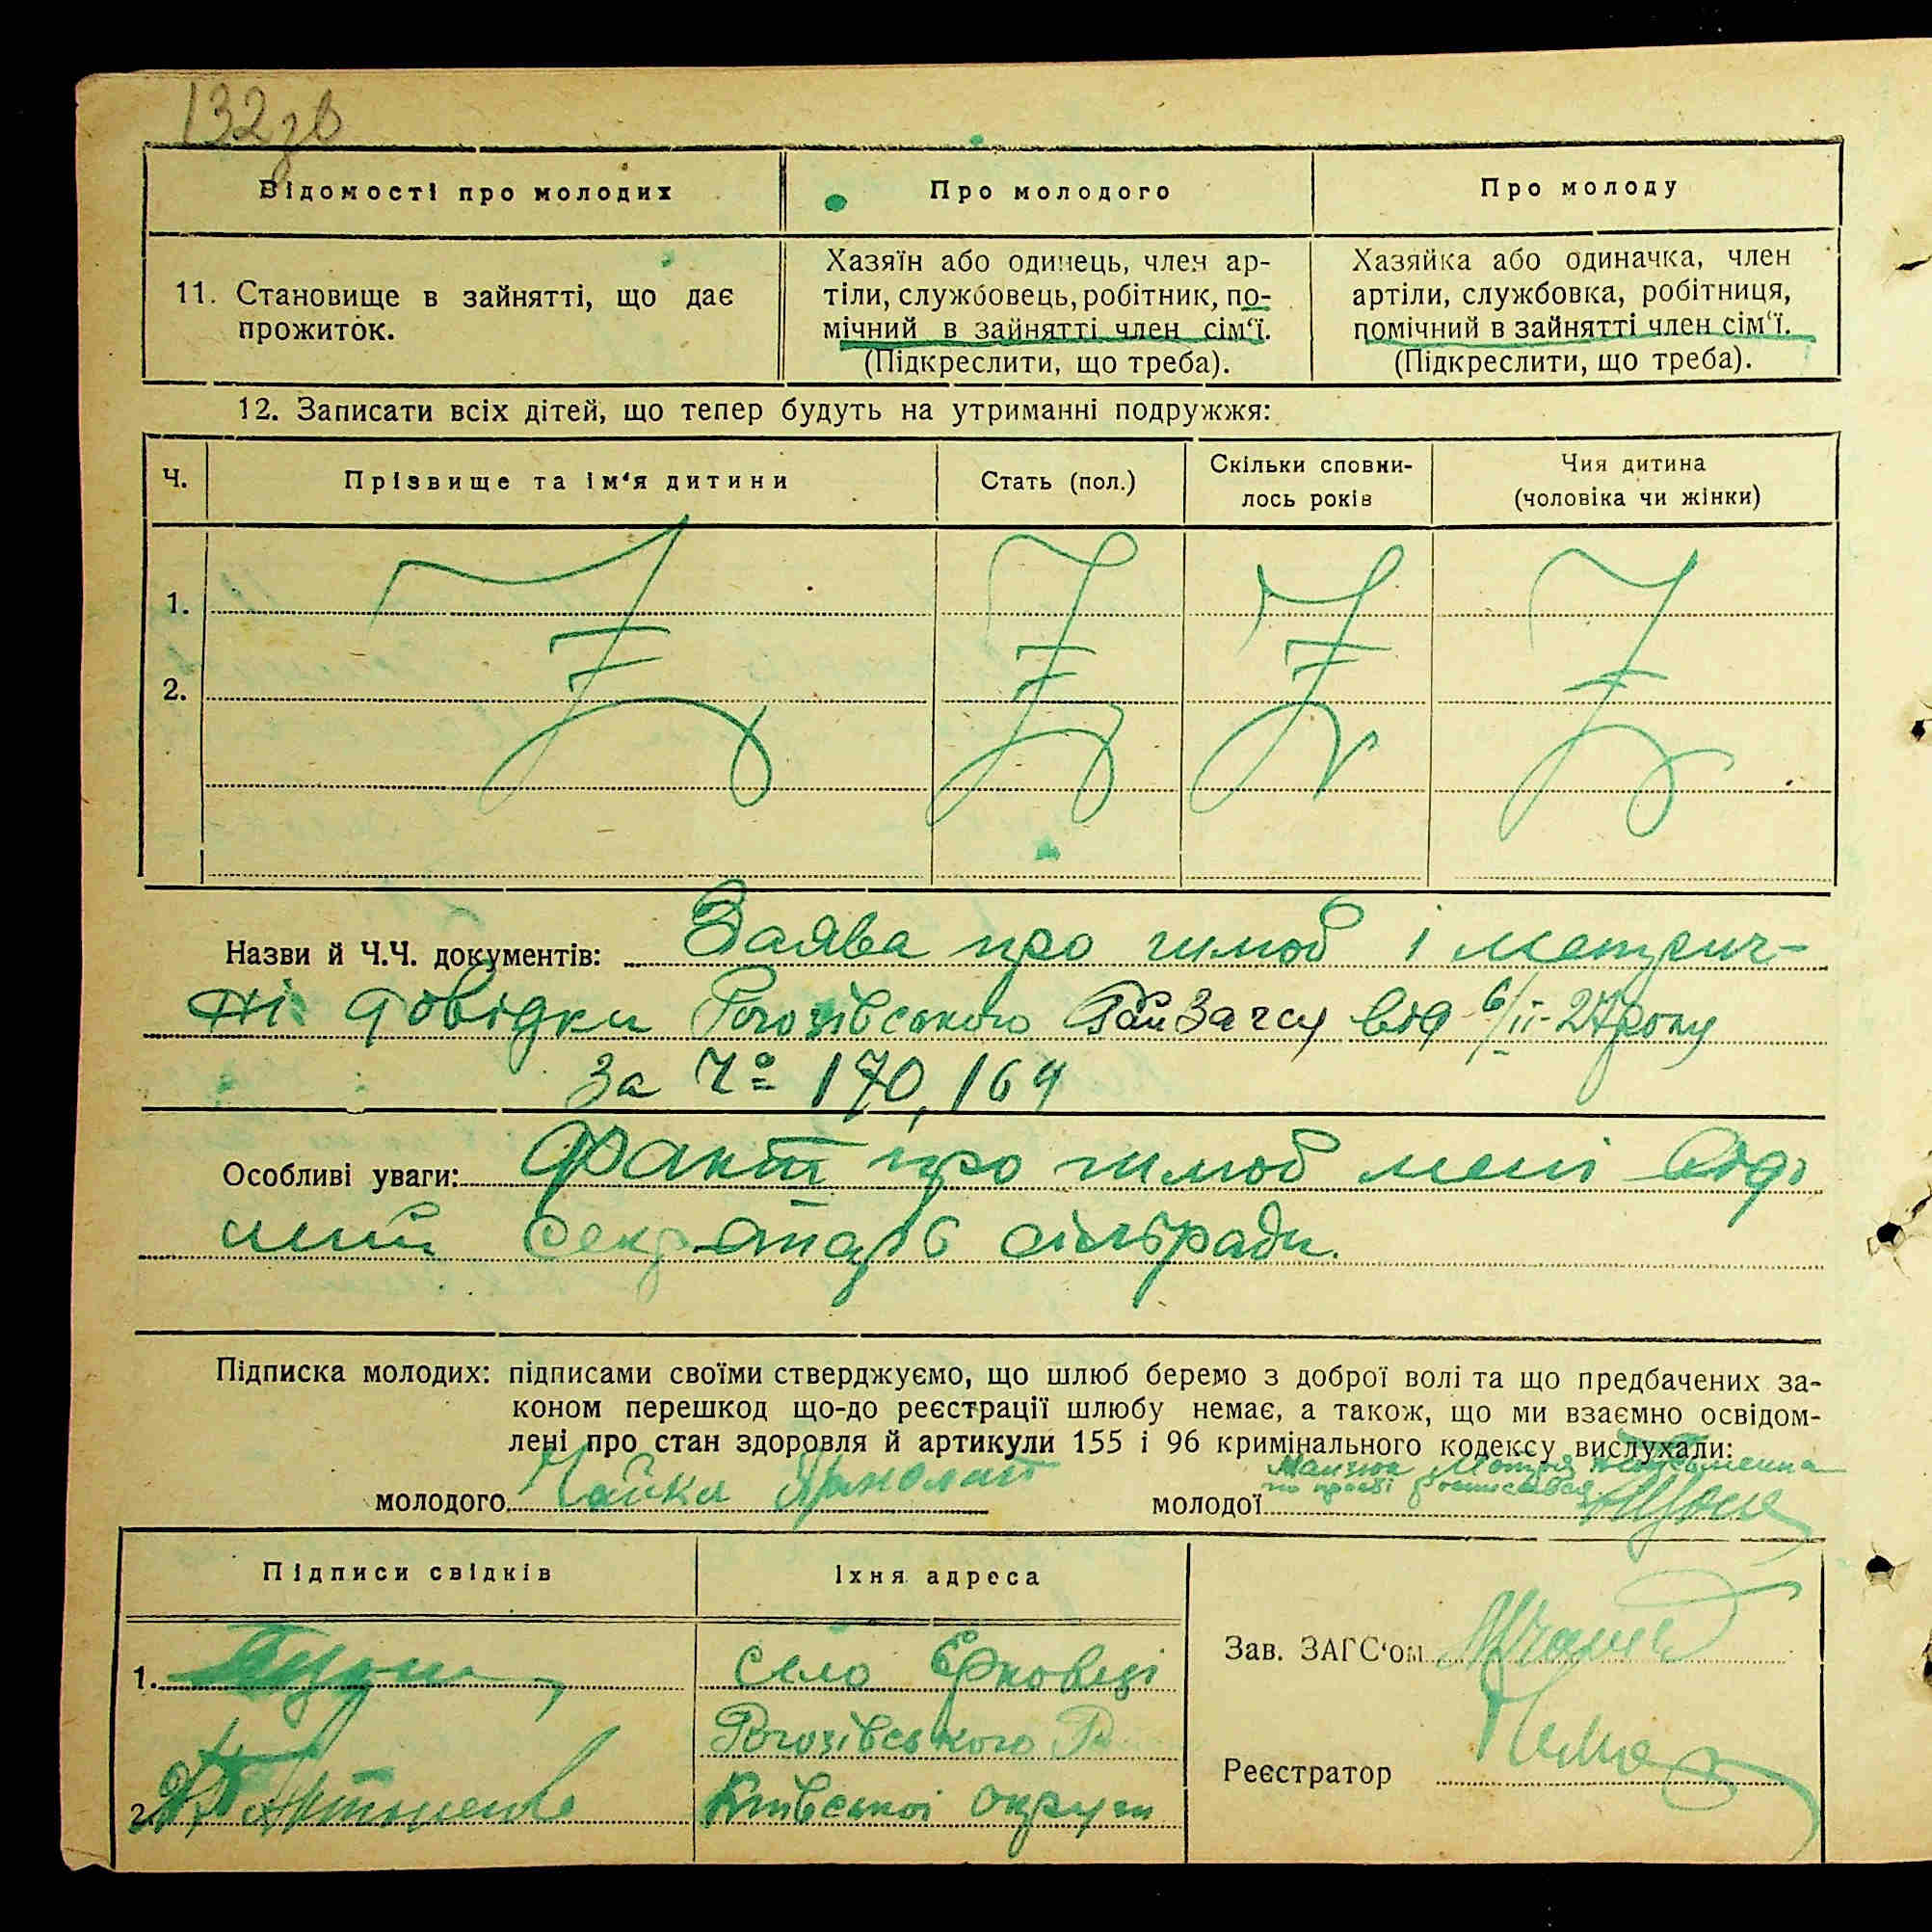 132зв
Відомості про молодих
Про молодого
Про молоду
11. Становище в зайнятті, що дає
прожиток.
Хазяїн або одинець, член ар-
тіли, службовець, робітник, по-
мічний в зайнятті член сім'ї.
(Підкреслити, що треба).
Хазяйка або одиначка, член
артіли, службовка, робітниця,
помічний в зайнятті член сім'ї.
(Підкреслити, що треба).
12. Записати всіх дітей, що тепер будуть на утриманні подружжя:
Ч.
Прізвище та ім'я дитини
Стать (пол.)
Скільки сповни-
лось років
Чия дитина
(чоловіка чи жінки)
1.
2.
Назви й Ч.Ч. документів: Заява про шлюб і метрич-
ні довідки Рогозівського РайЗагсу від 6/II-27 року
За Ч° 170, 164
Особливі уваги: Факт про шлюб мені відо
мий секретарь сільради.
Підписка молодих: підписами своїми стверджуємо, що шлюб беремо з доброї волі та що предбачених за-
коном перешкод що-до реєстрації шлюбу немає, а також, що ми взаємно освідом-
лені про стан здоров'я й артикули 155 і 96 кримінального кодексу вислухали:
молодого Чайка
молодої Мотря
по просбі росписався
Підписи свідків
Їхня адреса
1.
село Єрковці
Рогозівського Р
2. Артюшенко
Київської округи
Зав. ЗАГС'ом
Реєстратор